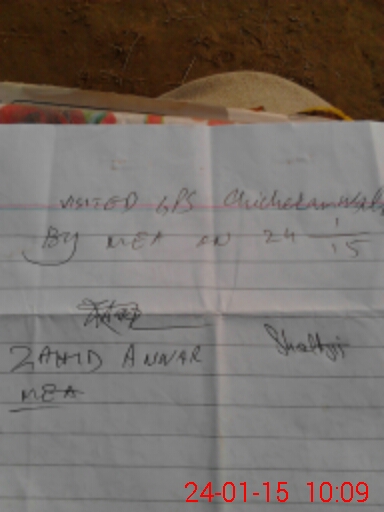 VISITED GPS
By MEA ON 24 1/15
ZAHID ANWAR
MEA
24-01-15 10:09